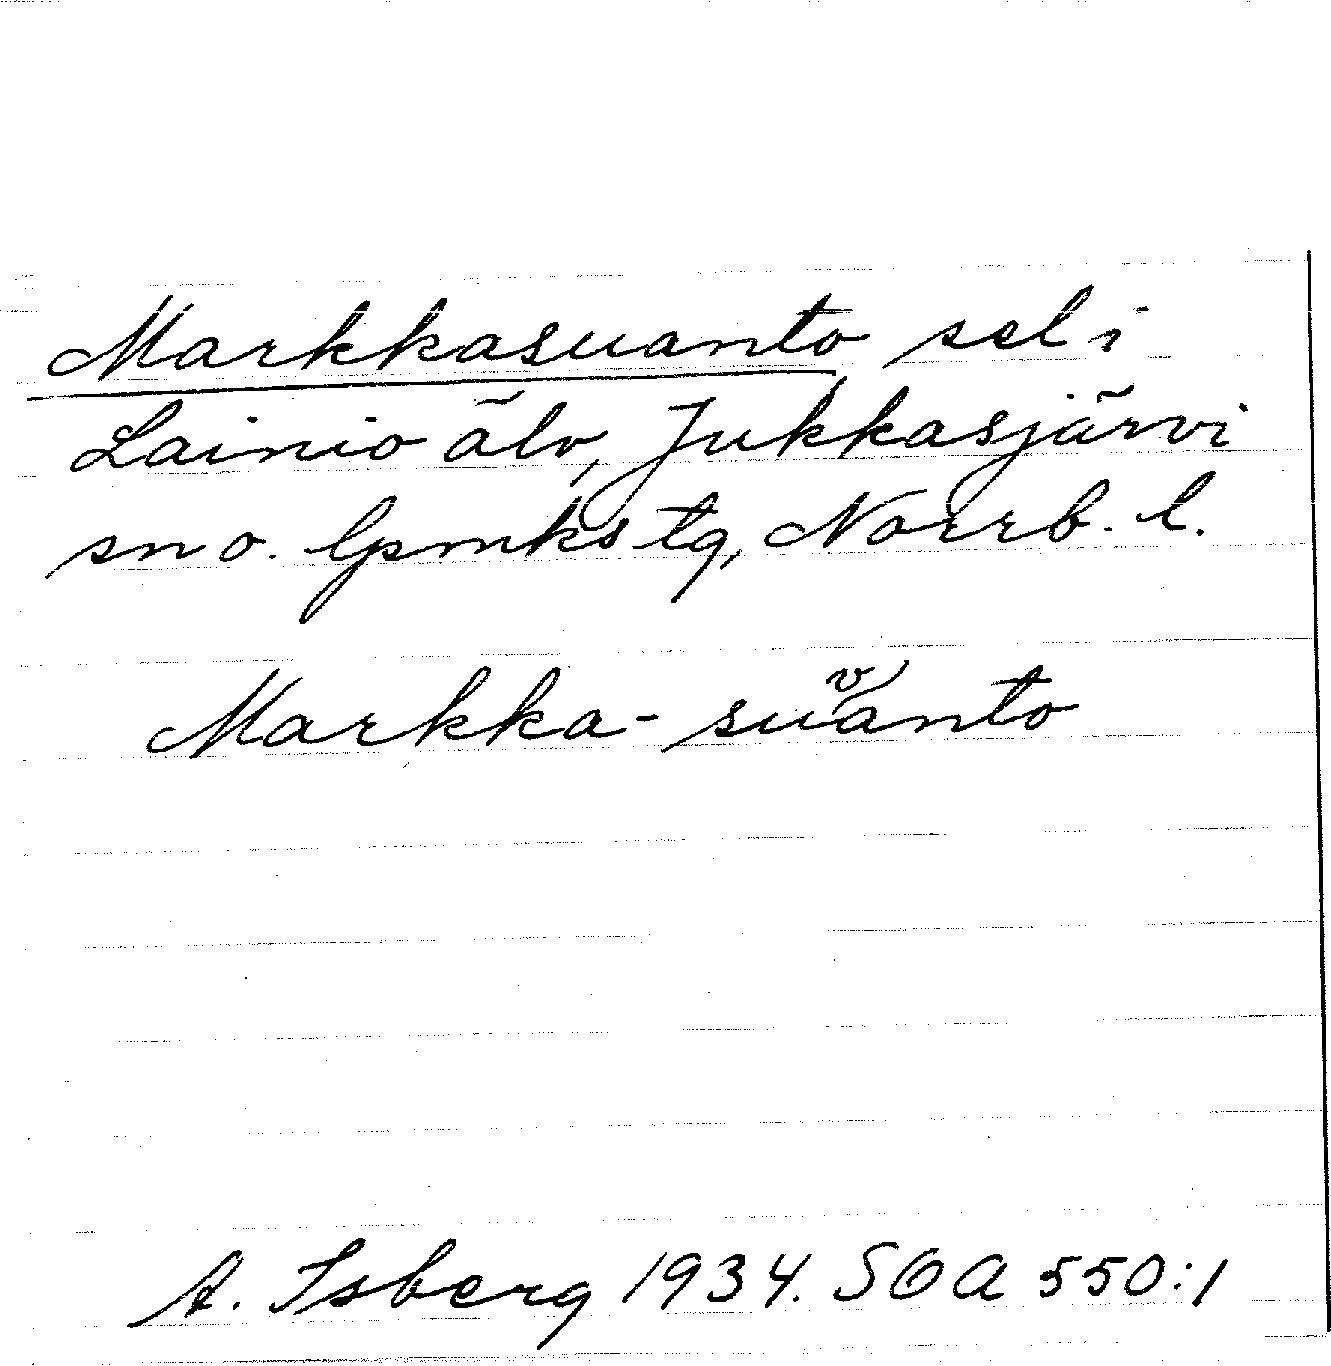 Markkasuanto sel i
Lainio älv, Jukkasjärvi
sn o. lpmks tg, Norrb. l.
Markka- suanto
v
A. Isberg 1934. SOA 550:1